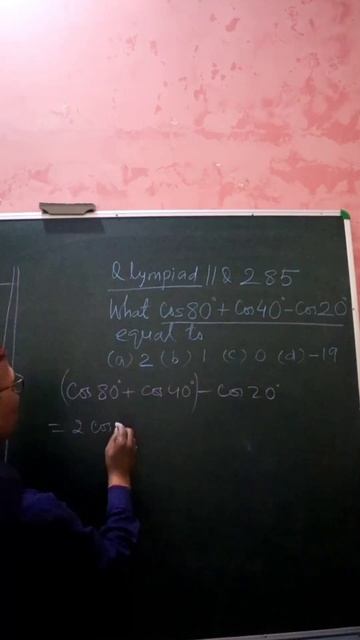 Olympiad || Q 285
What Cos80°+Cos40°-Cos20°
equal to
(a) 2 (b) 1 (c) 0 (d) -19
(Cos80°+Cos40°)-Cos20°
= 2 cos